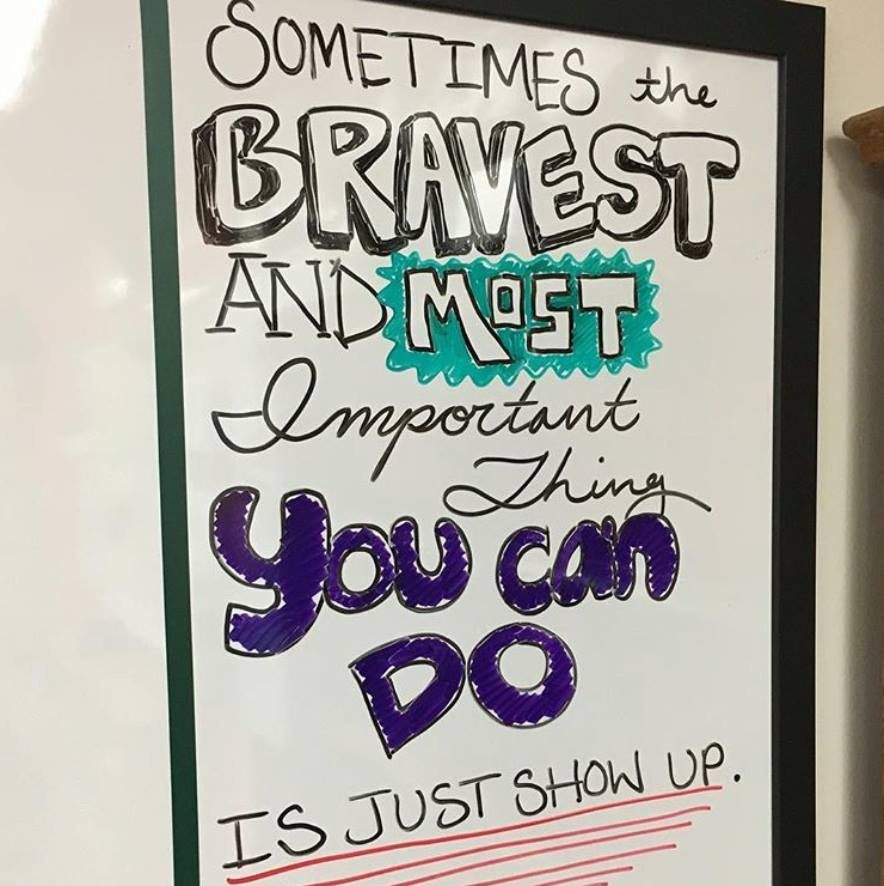 SOMETIMES the
BRAVEST
AND MOST
Important
Thing
You can
DO
IS JUST SHOW UP.